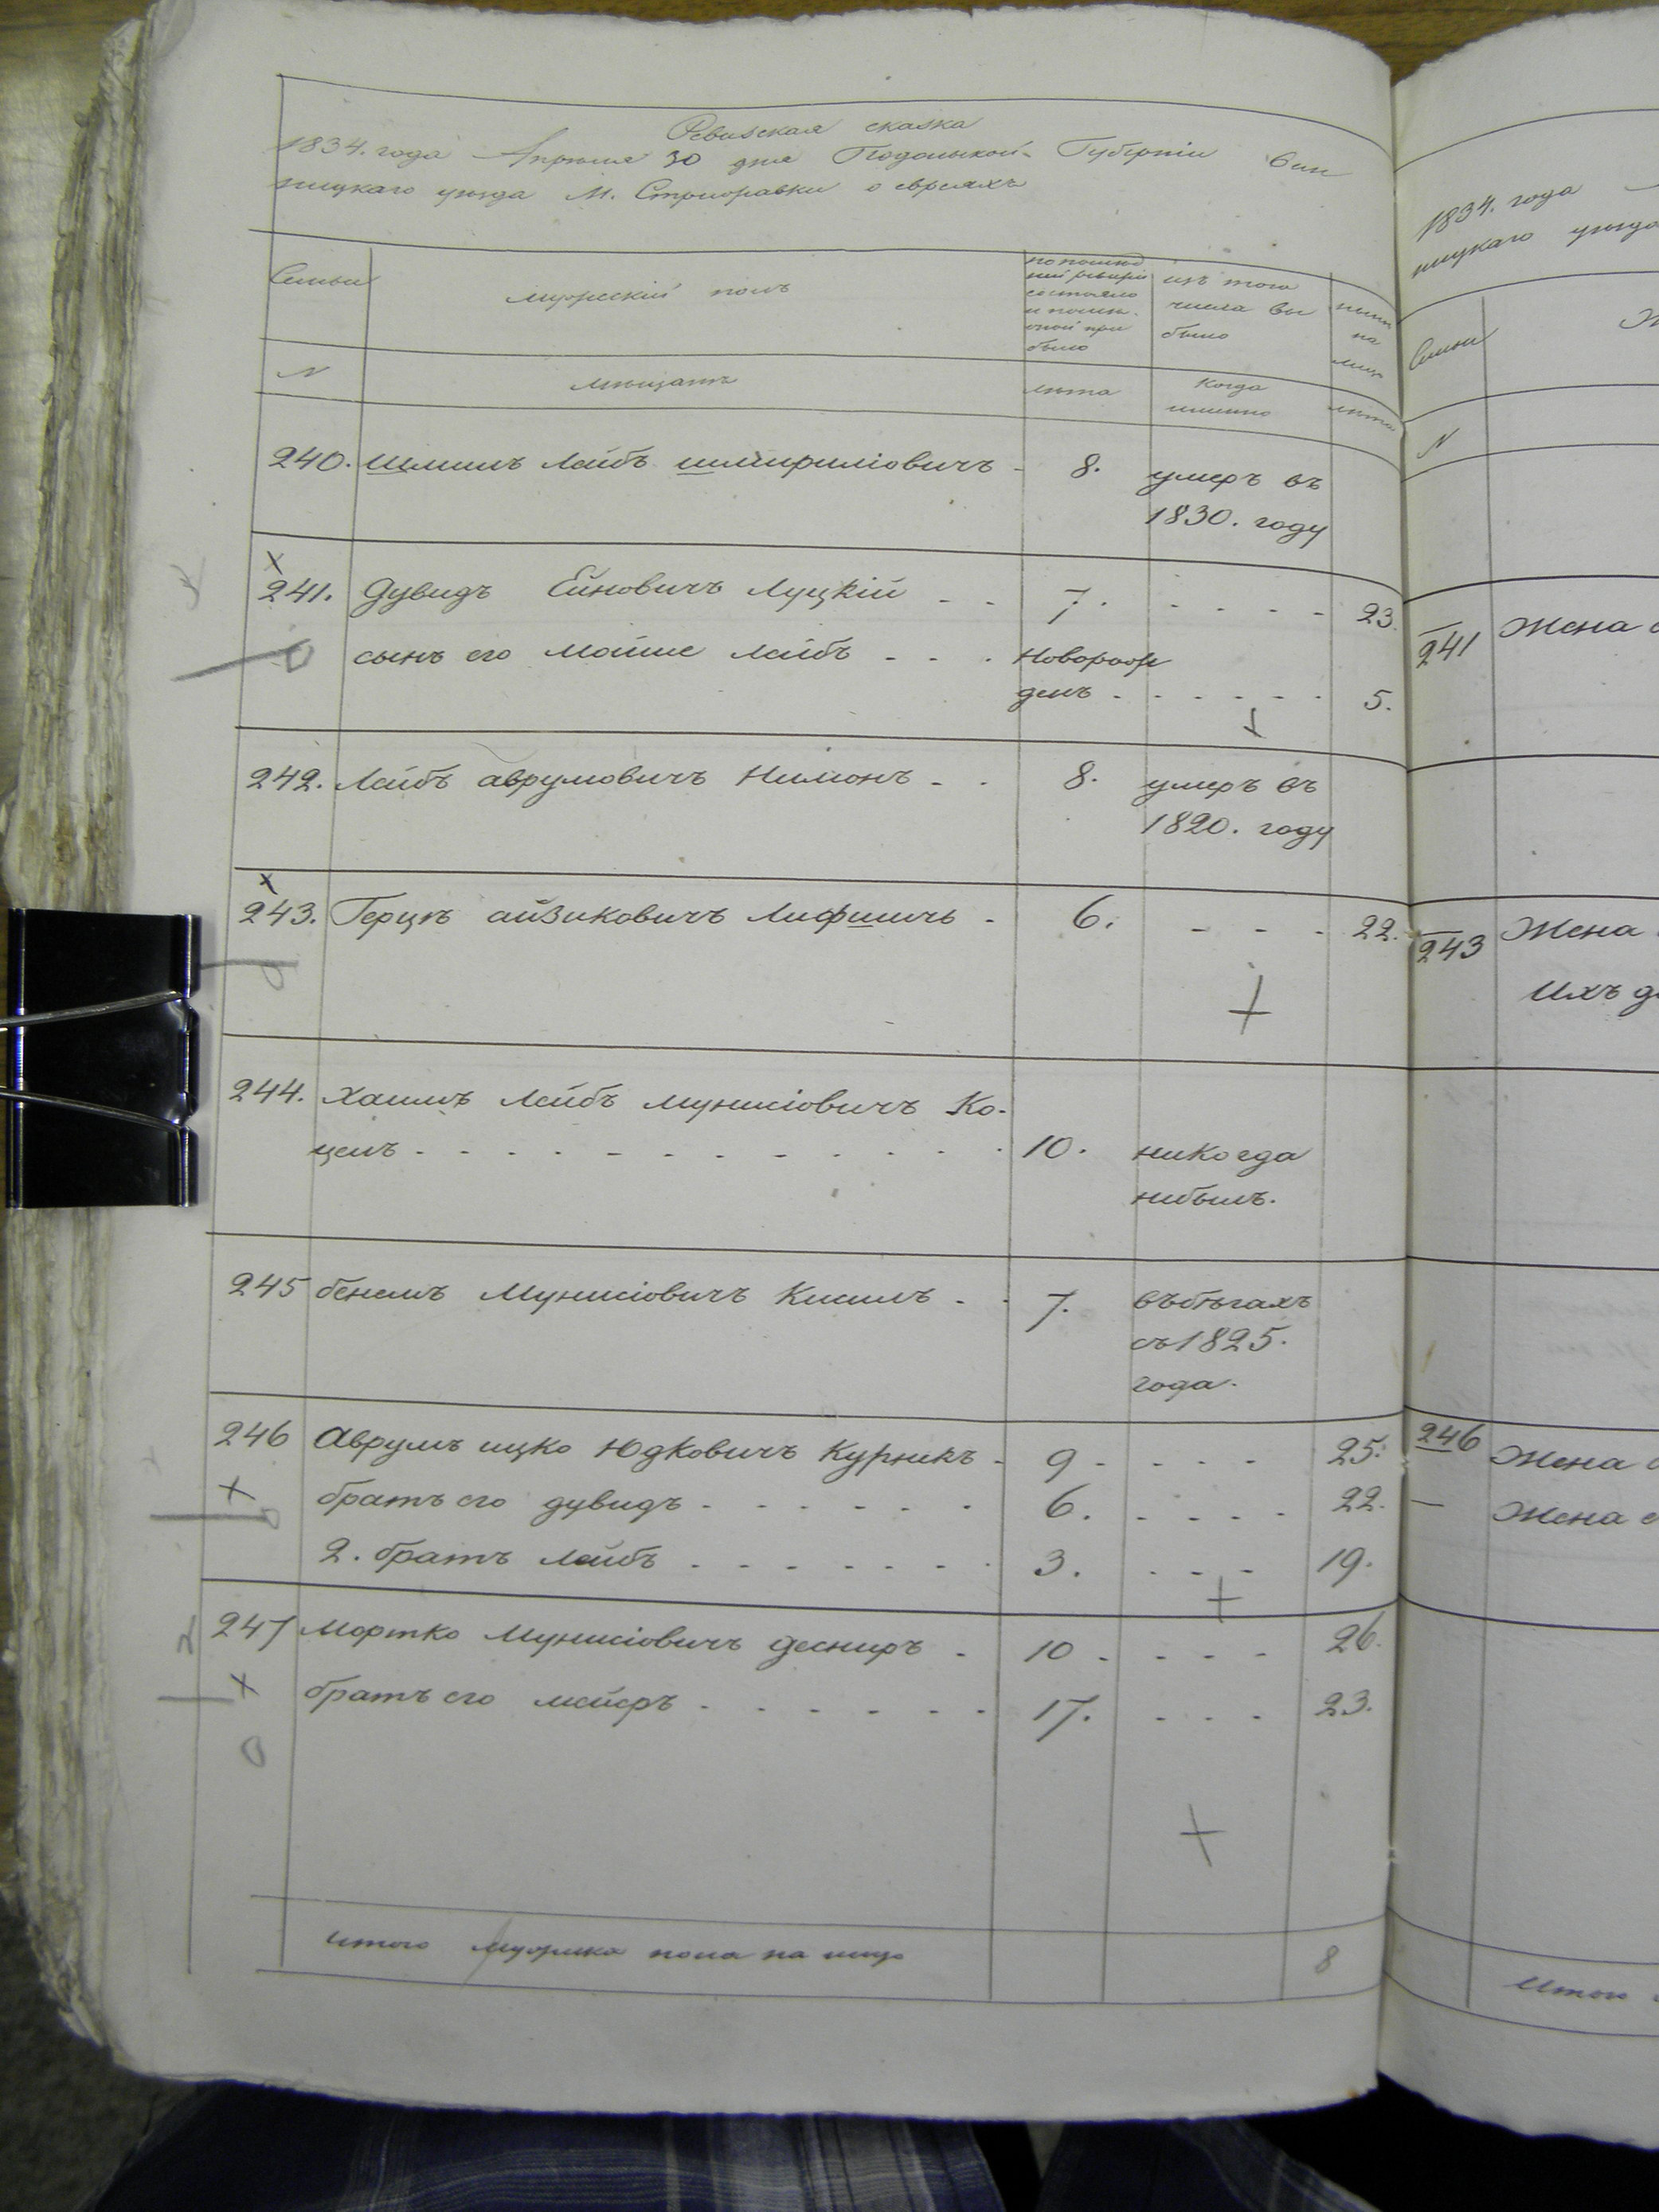 Ревизская сказка
1834. года Апреля 30 дня Подольской Губернии Вин
ницкаго уезда М. Стрижавки о евреях
Семьи
мужеский полъ
по послед
ней ревизии
состояло
и после
оной при
было
изъ того
числа вы
было
ныне
на
лицо
N
мещанъ
лета
Когда
именно
лета
240. Шмилъ Лейбъ шмириліовичъ - 8. умеръ въ
1830. году
241. Дувидъ Ейновичъ Луцкій - - 7. - - - - 23.
сынъ его Мошие Лейбъ - - . Новорож
денъ . - - - - - 5.
242. Лейбъ аврумовичъ Нимонъ - - 8. умеръ въ
1820. году
243. Герцъ айзиковичъ Лифшичъ - 6. - - - 22.
244. Хаимъ Лейбъ мунисіовичъ Ко-
целъ - - - - - - - - - - 10. никогда
небылъ.
245 бенемъ Мунисіовичъ Кисилъ - - 7. въбегахъ
съ 1825.
года.
246 Аврумъ ицко Юдковичъ Курникъ - 9 - - - - 25.
братъ его дувидъ - - - - - - 6. - - - - 22.
2. братъ лейбъ - - - - - - - 3. - - - 19.
247 Мортко Мунисіовичъ деснеръ - 10 - - - - 26.
братъ его мейеръ - - - - - - 17. - - - 23.
итого мужеска пола на лицо 8
1834. года
ницкаго уезда
Семьи
N
241 Жена
243 Жена
Ихъ
246 Жена
— Жена
Итого